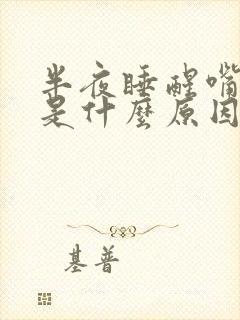 半夜睡醒嘴
是什麼原因
基普